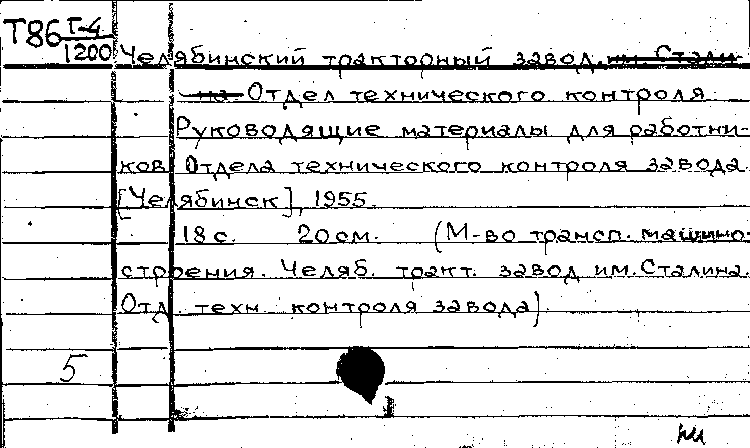 Т86 Г-4
1200 Челябинский тракторный завод им. Стали-
на Отдел технического контроля.
Руководящие материалы для работни-
ков Отдела технического контроля завода.
[Челябинск], 1955.
18 с. 20 см. (М-во трансп. машино-
строения. Челяб. тракт. завод им. Сталина.
Отд. техн. контроля завода).
5